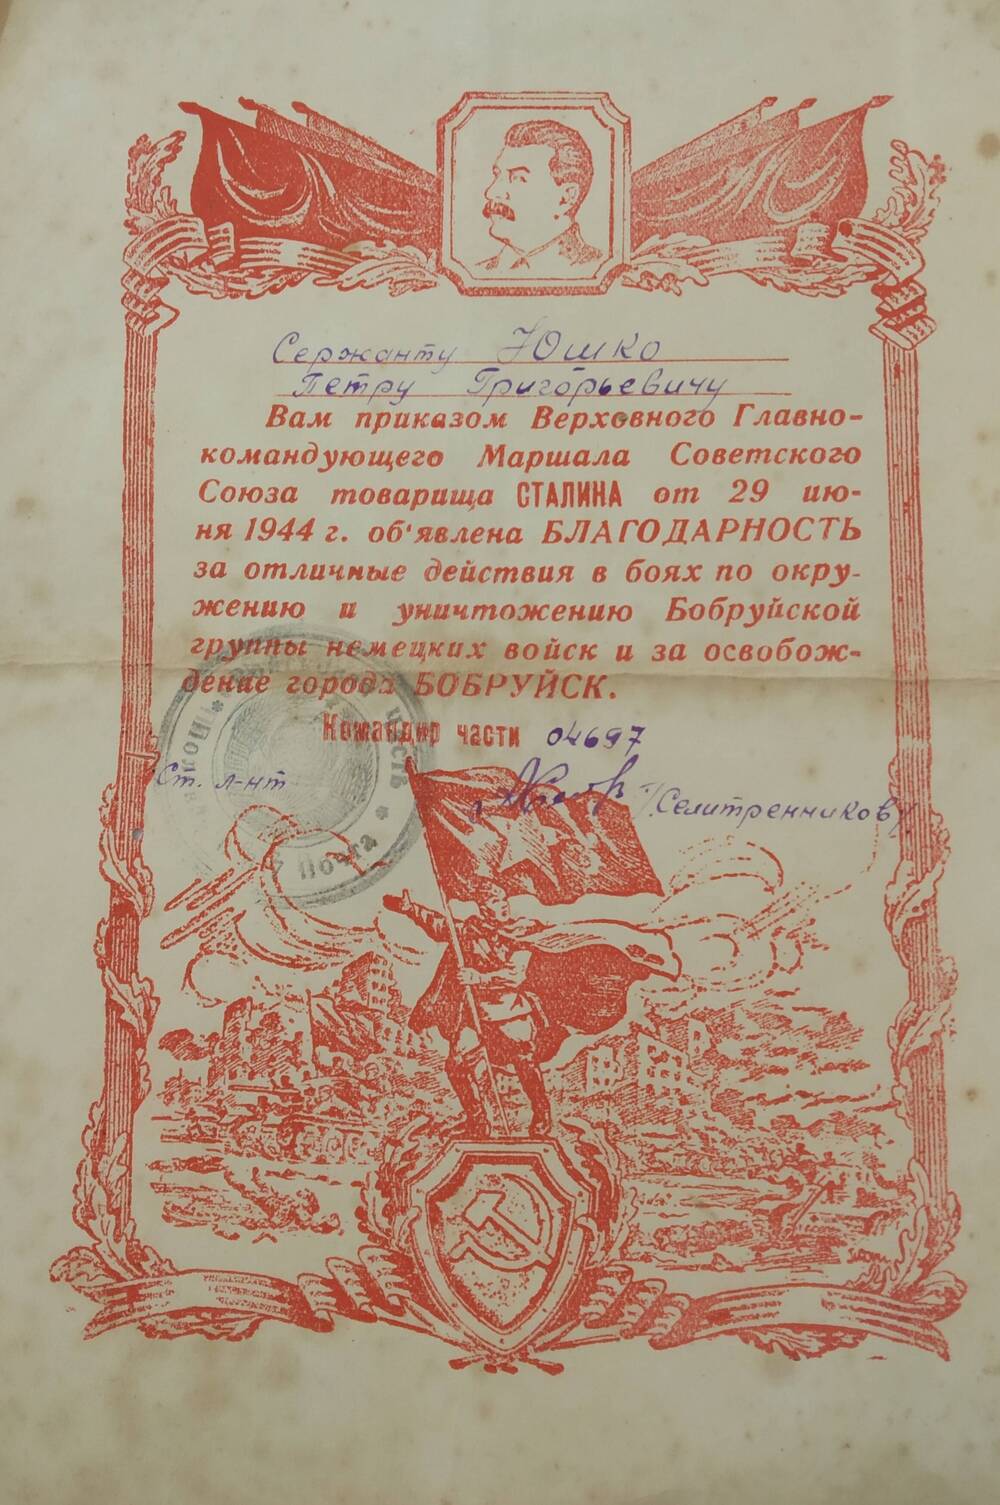 Сержанту Юшко
Петру Григорьевичу
Вам приказом Верховного Главно-
командующего Маршала Советского
Союза товарища СТАЛИНА от 29 ию-
ня 1944 г. об'явлена БЛАГОДАРНОСТЬ
за отличные действия в боях по окру-
жению и уничтожению Бобруйской
группы немецких войск и за освобож-
дение города БОБРУЙСК.
Командир части 04697
Ст. л-нт /Селитренников/
часть * Почта